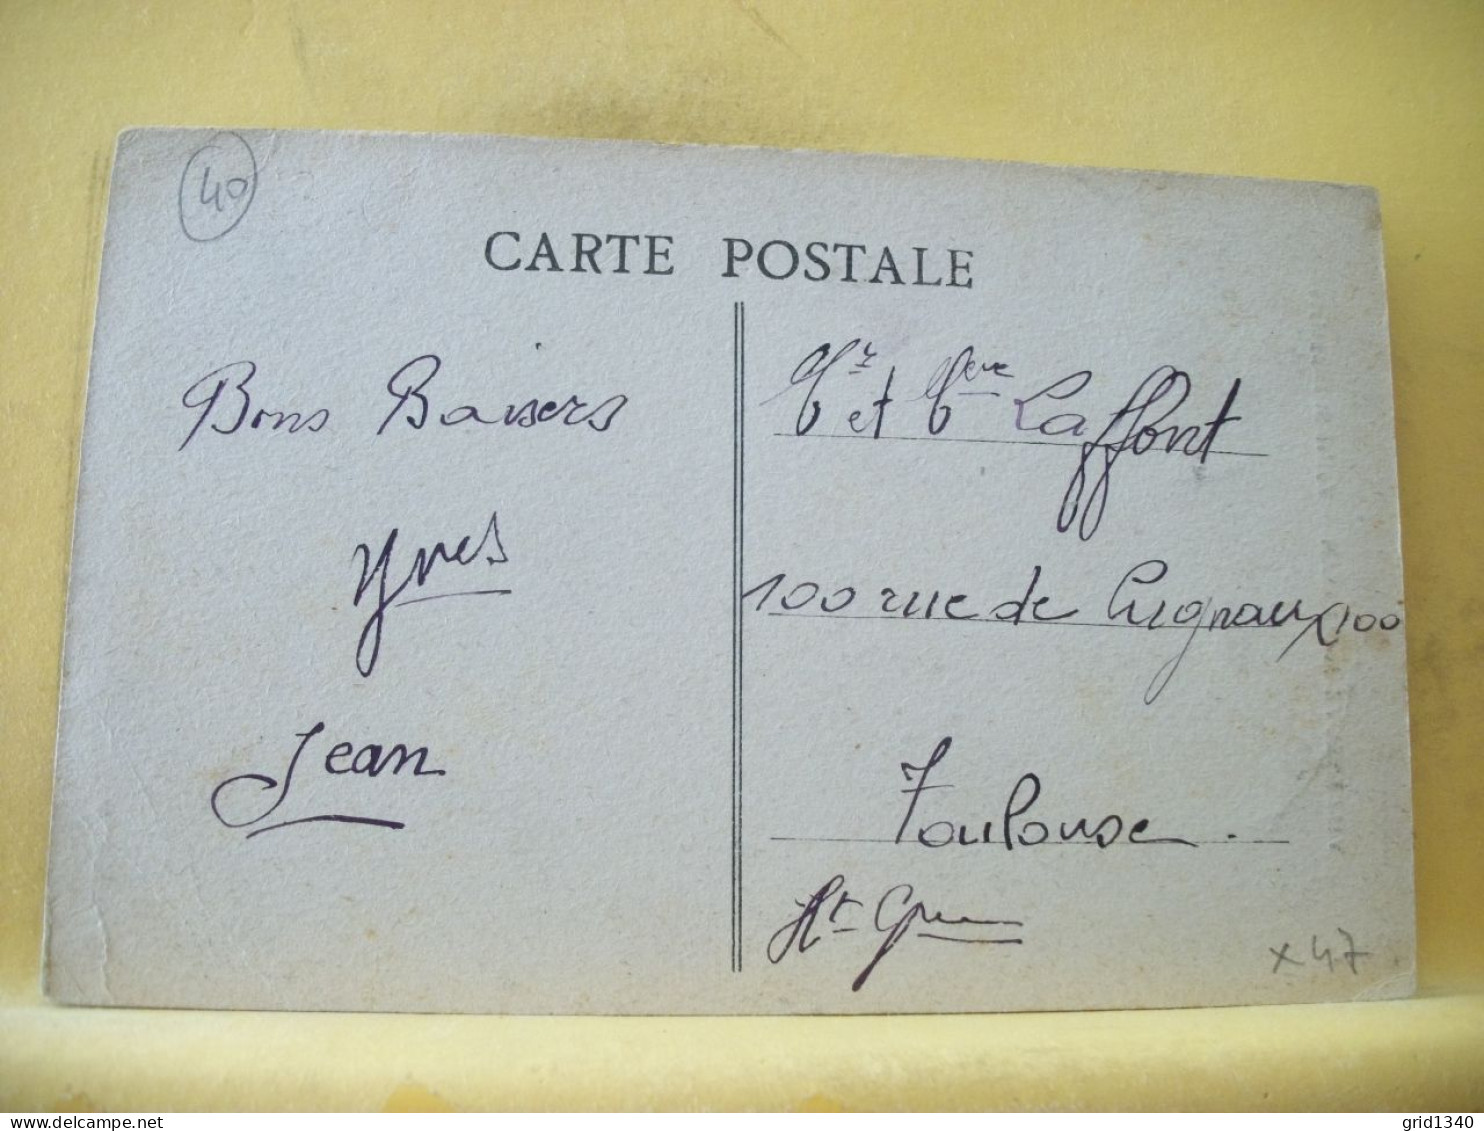 40
CARTE POSTALE
Bons Baisers
Yves
Jean
et Laffont
100 rue de Cugnaux 100
Toulouse.
Ht Gne
x 47
grid1340